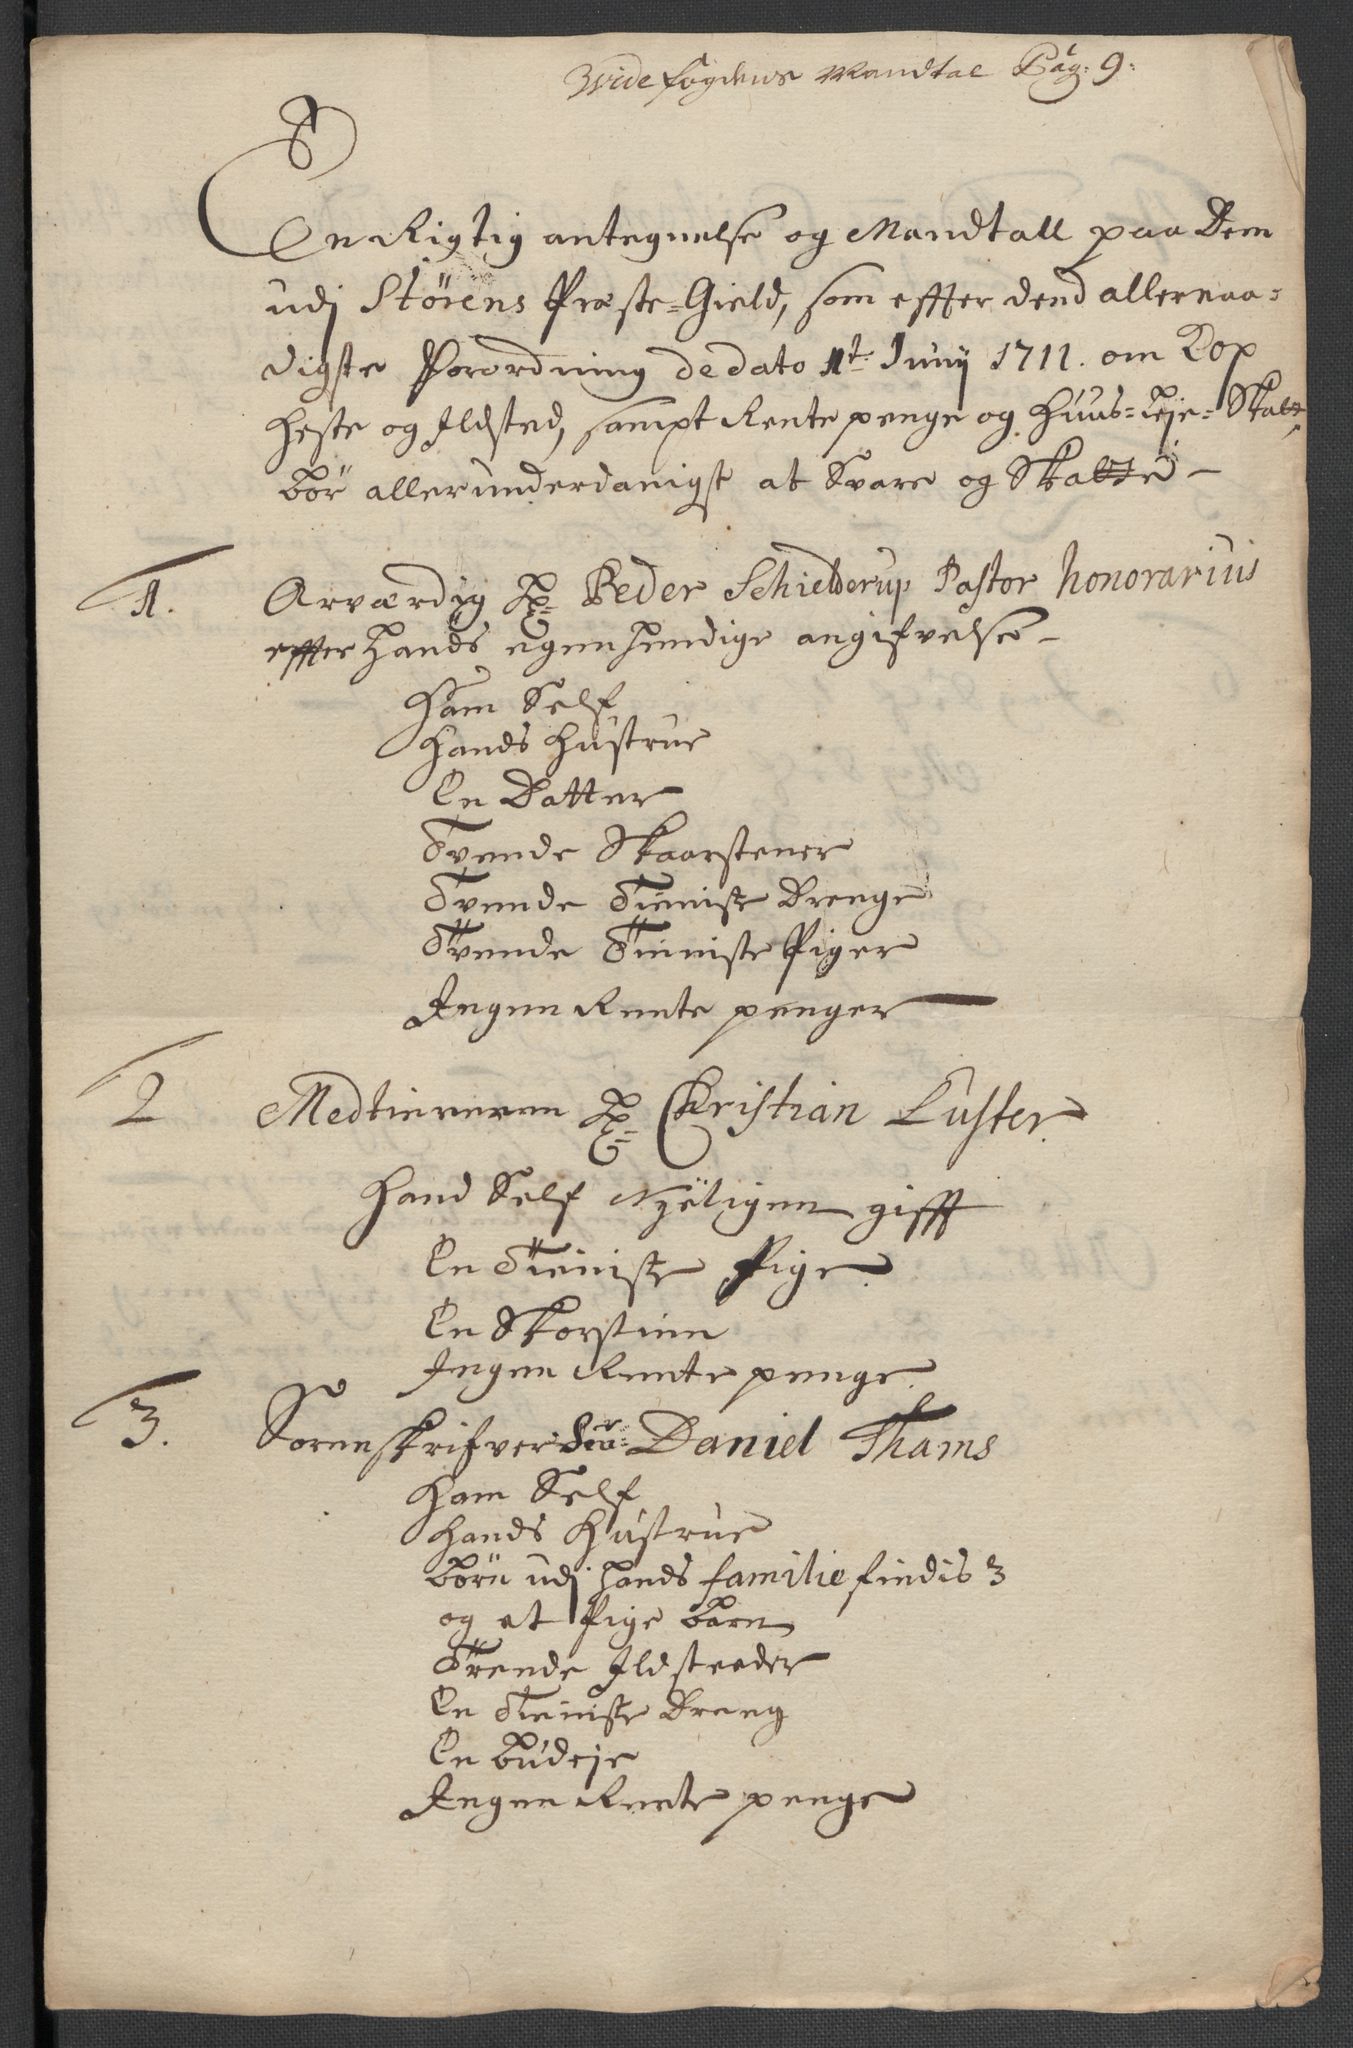 Vide fogdens Mandtal Pag: 9:
En Rigtig antegnelse og Mandtall paa Dem
udj Störens Præste=Gield, som effter dend allernaa=
digste Forordning de dato 1t Junij 1711. om Kop
Heste og Ildsted, sampt Rente penge og Huus=Leje=Skatt,
bör allerunderdanigst at Svare og Skatte –
1. Ærværdig Hr: Peder Schielderup Pastor honorarius
effter Hands egenhendige angifvelse –
Ham Self
Hands Hustrue
En Datter
Tvende Skaarstener
Tvende Tieniste Drenge
Tvende Tieniste Piger
Ingen Rente penger
2 Medtieneren Hr: Christian Luster.
Hand Self Nyeligen gifft
En Tieniste Pige
En Skorstien
Ingen Rente penge.
3. Sorenskrifver Sr: Daniel Thams
Ham Self
Hands Hustrue
Börn udj Hands familie findis 3
og et Pige barn
Trende Ildsteeder
En Tieniste Dreng
En budeje
Ingen Rente penge